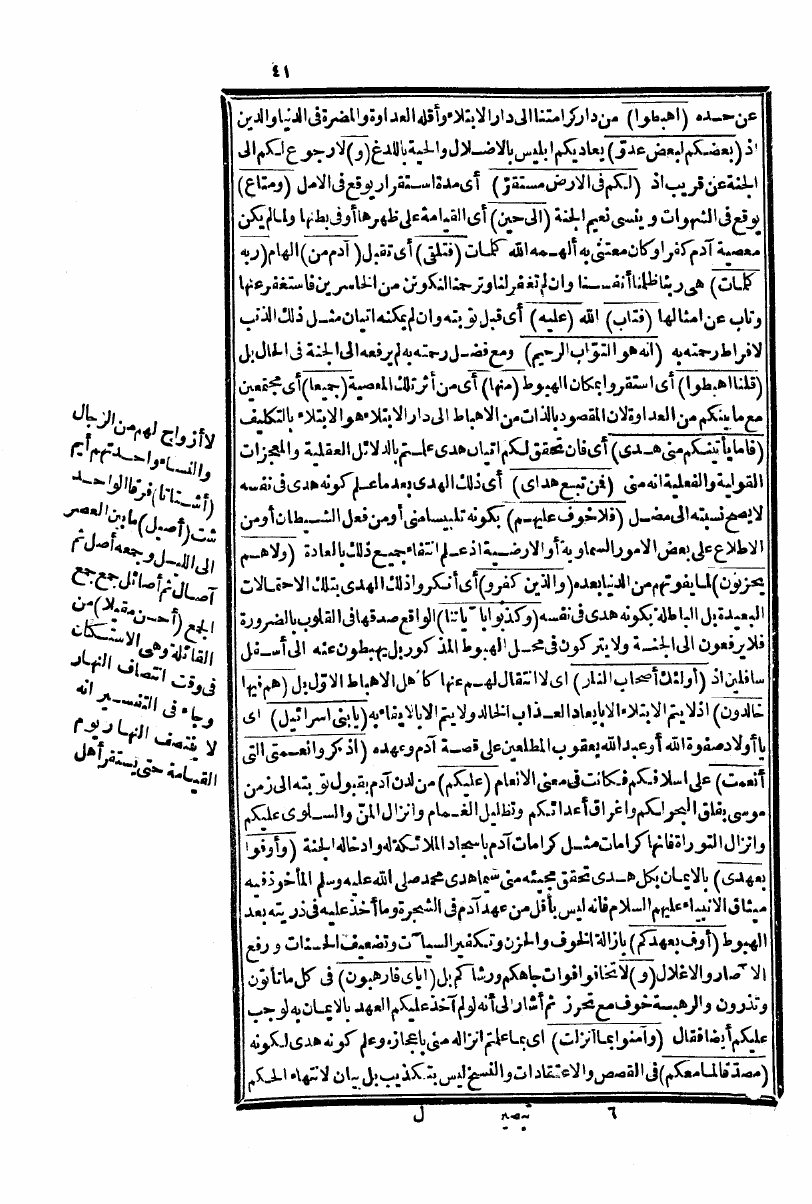 ٤١
عن حده (اهبطوا) من دار كرامتنا الى دار الابتلاء وأقله العداوة والمضرة فى الدنيا والدين
اذ (بعضكم لبعض عدو) يعاديكم ابليس بالاضلال والحية باللدغ (و) لا رجوع لكم الى
الجنة عن قريب اذ (لكم فى الارض مستقر) أى مدة استقرار يوقع فى الامل (ومتاع)
يوقع فى الشهوات وينسى نعيم الجنة (الى حين) أى القيامة على ظهرها أوفى بطنها ولما لم يكن
معصية آدم كفرا وكان معتنى به ألهمه الله كلمات (فتلقى) أى تقبل (آدم من) الهام (ربه
كلمات) هى ربنا ظلمنا أنفسنا وان لم تغفر لنا وترحمنا لنكونن من الخاسرين فاستغفر عنها
وتاب عن امثالها (فتاب) الله (عليه) أى قبل توبته وان لم يمكنه اتيان مثل ذلك الذنب
لافراط رحمته به (انه هو التواب الرحيم) ومع فضل رحمته به لم يرفعه الى الجنة فى الحال بل
(قلنا اهبطوا) أى استقروا بمكان الهبوط (منها) أى من أثر تلك المعصية (جميعا) أى مجتمعين
مع ما بينكم من العداوة لان المقصود بالذات من الاهباط الى دار الابتلاء هو الابتلاء بالتكليف
(فاما يأتينكم منى هدى) أى فان تحقق لكم اتيان هدى علمتم بالدلائل العقلية والمعجزات
القولية والفعلية انه منى (فمن تبع هداى) أى ذلك الهدى بعد ما علم كونه هدى فى نفسه
لا يصح نسبته الى مضل (فلا خوف عليهم) بكونه تلبيسا منى أو من فعل الشيطان أو من
الاطلاع على بعض الامور السماوية أو الارضية اذ علم انتفاء جميع ذلك بالعادة (ولا هم
يحزنون) لما يفوتهم من الدنيا بعده (والذين كفروا) أى أنكروا ذلك الهدى بتلك الاحتمالات
البعيدة بل الباطلة بكونه هدى فى نفسه (وكذبوا باٰياتنا) الواقع صدقها فى القلوب بالضرورة
فلا يرفعون الى الجنة ولا يتركون فى محل الهبوط المذكور بل يهبطون عنه الى أسفل
سافلين اذ (أولئك أصحاب النار) اى لا انتقال لهم عنها كأهل الاهباط الاول بل (هم فيها
خالدون) اذ لا يتم الابتلاء الا بايعاد العذاب الخالد ولا يتم الا بالايفاء به (يا بنى اسرائيل) اى
يا أولاد صفوة الله أو عبد الله يعقوب المطلعين على قصة آدم وعهده (اذكروا نعمتى التى
أنعمت) على اسلافكم فكانت فى معنى الانعام (عليكم) من لدن آدم بقبول توبته الى زمن
موسى بفلق البحر لكم واغراق أعدائكم وتظليل الغمام وانزال المن والسلوى عليكم
وانزال التوراة فانها كرامات مثل كرامات آدم باسجاد الملائكة له وادخاله الجنة (وأوفوا
بعهدى) بالايمان بكل هدى تحقق مجيئه منى سيما هدى محمد صلى الله عليه وسلم المأخوذ فيه
ميثاق الانبياء عليهم السلام فانه ليس بأقل من عهد آدم فى الشجرة وما أخذ عليه فى ذريته بعد
الهبوط (أوف بعهدكم) بازالة الخوف والحزن وتكفير السيآت وتضعيف الحسنات ورفع
الآصار والاغلال (و) لا تخافوا فوات جاهكم ورشاكم بل (اياى فارهبون) فى كل ما تأتون
وتذرون والرهبة خوف مع تحرز ثم أشار الى أنه لو لم آخذ عليكم العهد بالايمان به لوجب
عليكم أيضا فقال (وآمنوا بما أنزلت) اى بما علمتم انزاله منى باعجازه وعلم كونه هدى لكونه
(مصدقا لما معكم) فى القصص والاعتقادات والنسخ ليس بتكذيب بل بيان لانتهاء الحكم
لا أزواج لهم من الرجال
والنساء واحدتهم أيم
(أشتاتا) فرقا الواحد
شت (أصيل) ما بين العصر
الى الليل وجمعه أصل ثم
آصال ثم أصائل جمع جمع
الجمع (أحسن مقيلا) من
القائلة وهى الاستكنان
فى وقت انتصاف النهار
وجاء فى التفسير انه
لا ينتصف النهار يوم
القيامة حتى يستقر أهل
٦ تبصير ل